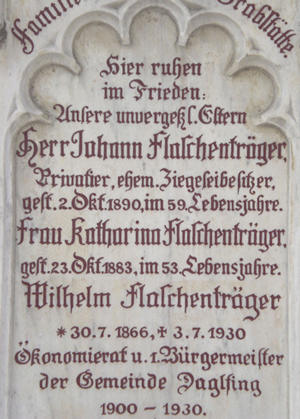 Familien Grabstätte.
Hier ruhen
im Frieden:
Unsere unvergeßl. Eltern
Herr Johann Flaschenträger,
Privatier, ehem. Ziegeleibesitzer,
gest. 2. Okt. 1890, im 59. Lebensjahre.
Frau Katharina Flaschenträger,
gest. 23. Okt. 1883, im 53. Lebensjahre.
Wilhelm Flaschenträger
* 30.7.1866, ✝ 3.7.1930
Ökonomierat u. 1. Bürgermeister
der Gemeinde Daglfing
1900 – 1930.